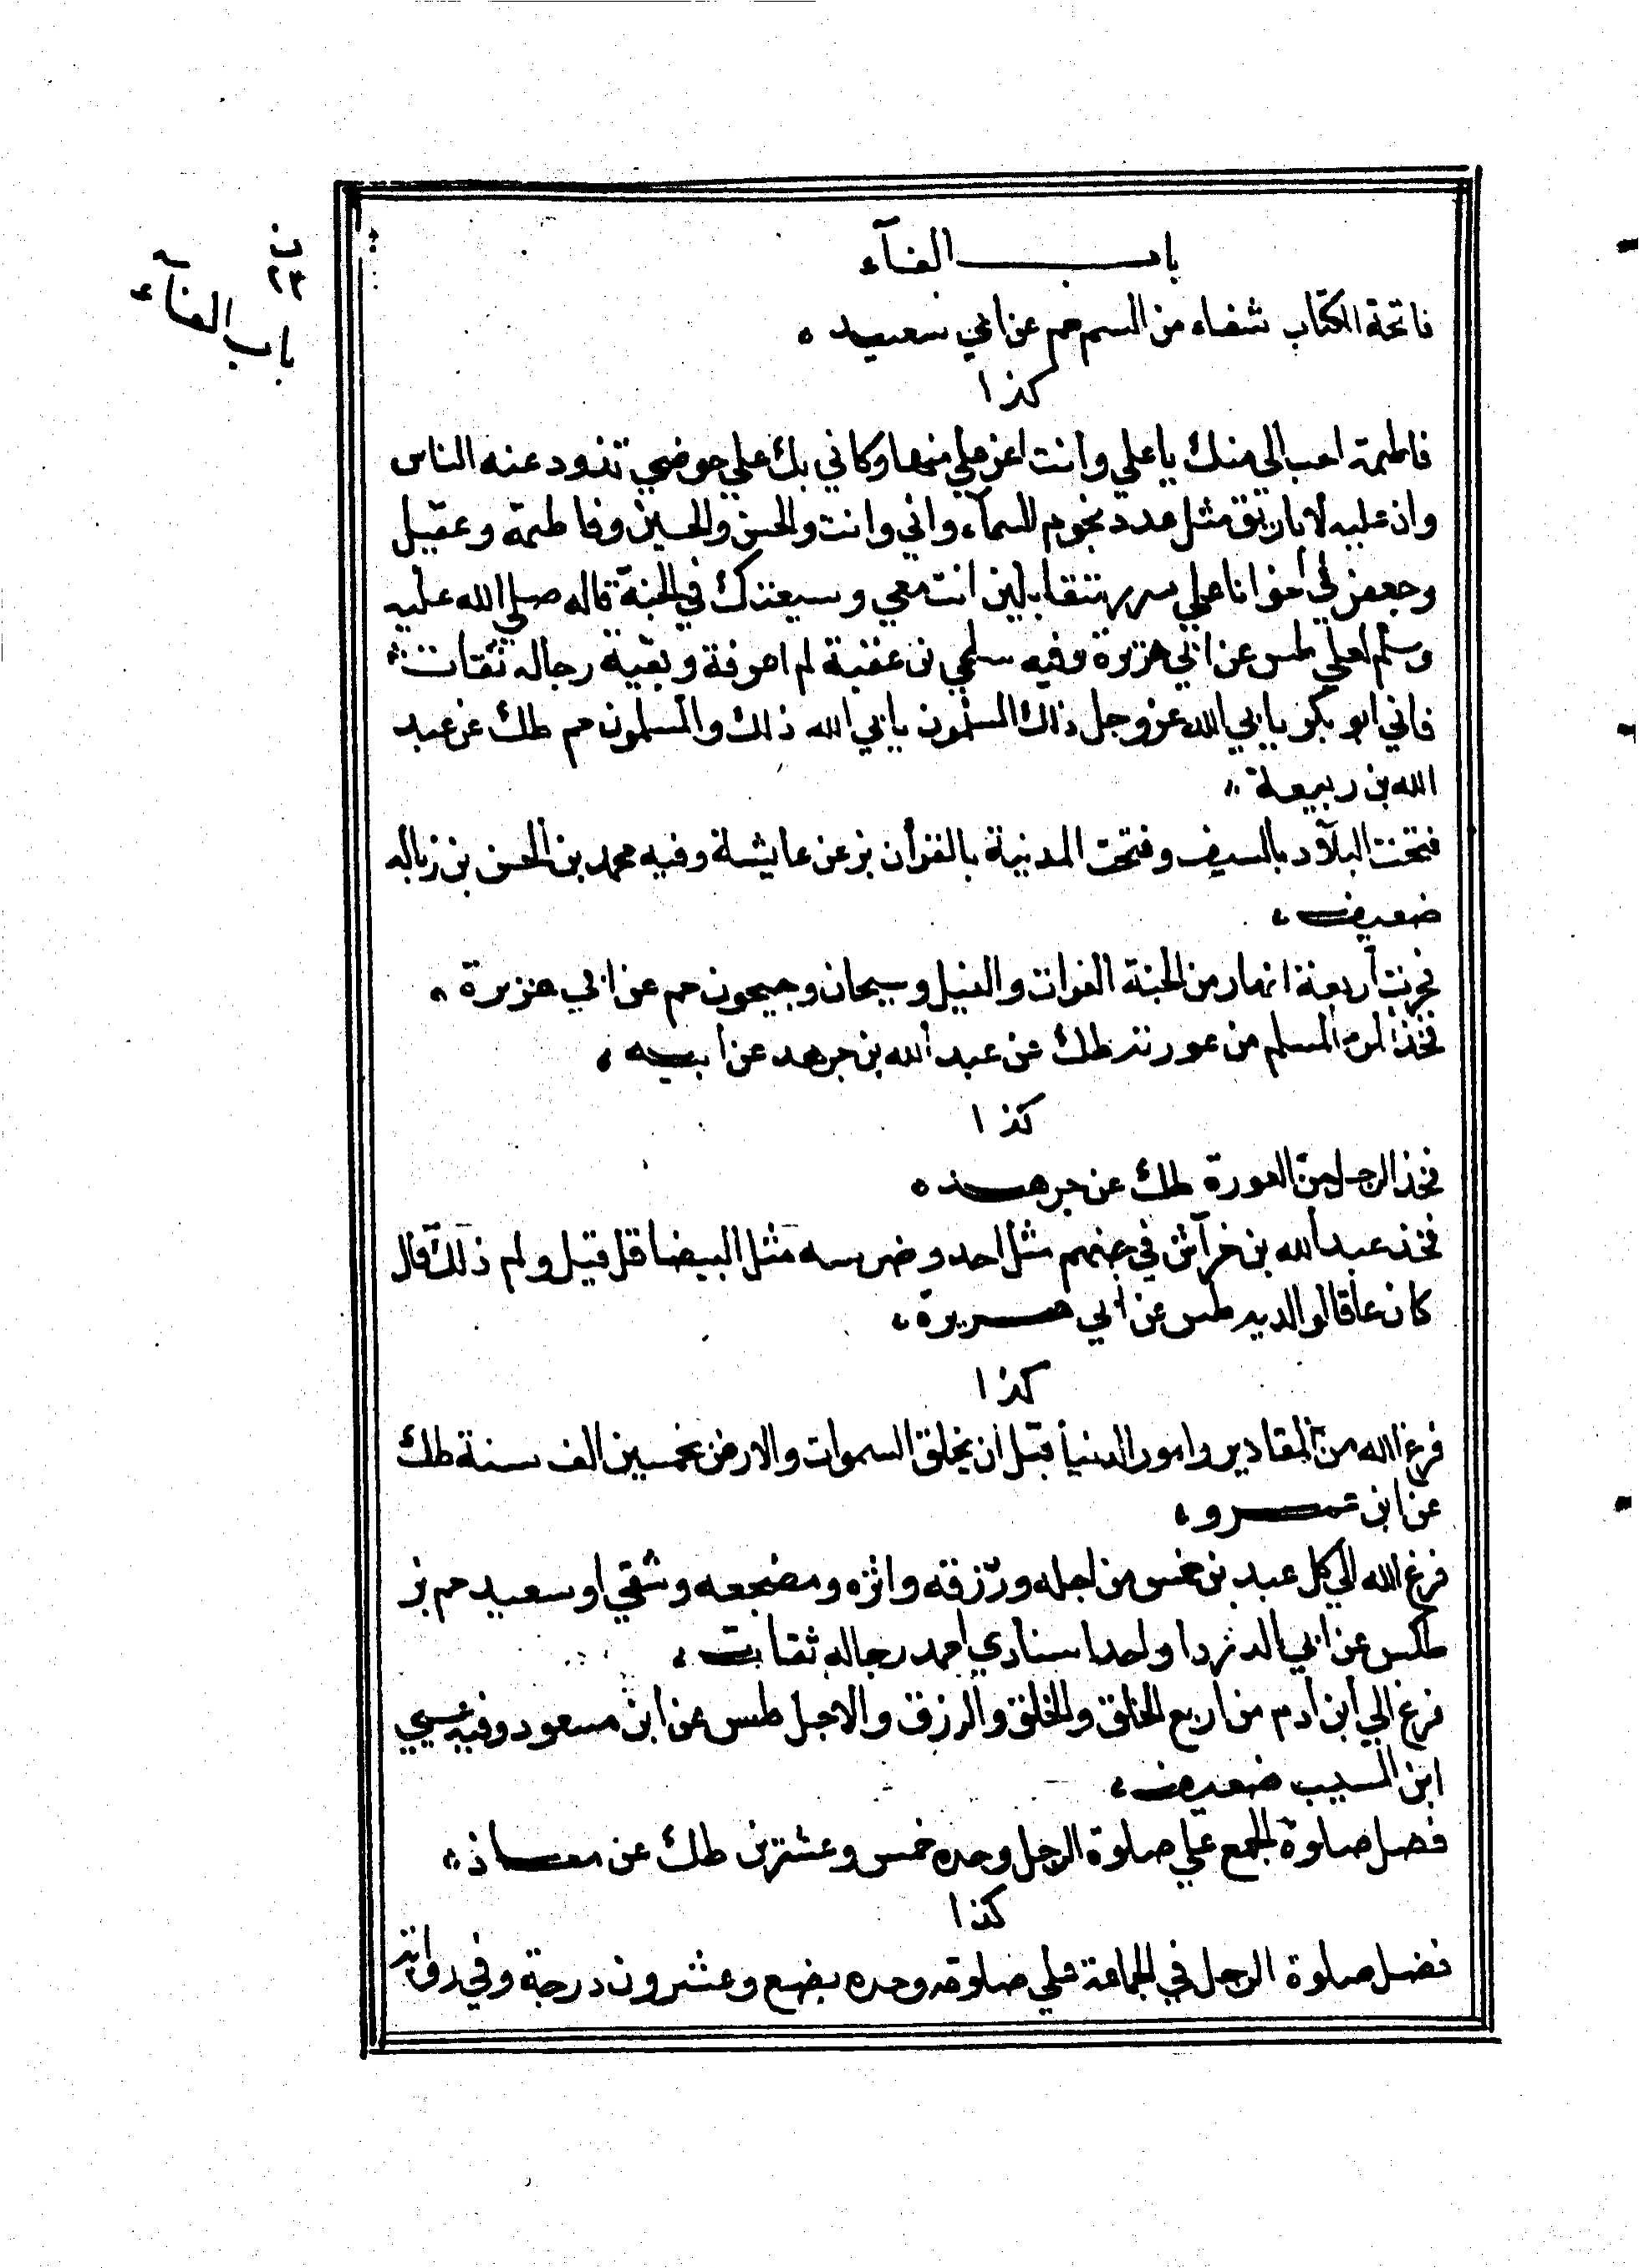 باب الفآء
فاتحة الكتاب شفاء من السم حم عن ابي سعيد
كذا
فاطمة احب الي منك يا علي وانت اعز علي منها وكاني بك علي حوضي تذود عنه الناس
وان عليه لاباريق مثل عدد نجوم السمآء واني وانت والحسن والحسين وفاطمة وعقيل
وجعفر في اخوانا علي سرر متقابلين انت معي وسيعتك في الجنة قاله صلي الله عليه
وسلم لعلي طس عن ابي هريرة وفيه سلمي بن عقبة لم اعرفة وبقية رجاله ثقات
فاني ابو بكر يابي الله عز وجل ذلك المسلمون يابي الله ذلك والمسلمون حم طك عن عبد
الله بن ربيعة
فتحت البلآد بالسيف وفتحت المدنية بالقرأن بز عن عايشة وفيه محمد بن الحسن بن زباله
ضعيف
فجرت أربعة انهار من الجنة الفرات والنيل وسيحان وجيحون حم عن ابي هريرة
فخذ المرء المسلم من عورته طك عن عبد الله بن جرهد عن أبيه
كذا
فخذ الرجل من العورة طك عن جرهد
فخذ عبد الله بن خرآش في جهنم مثل احد وضرسه مثل البيضا قل قيل ولم ذلك قال
كان عاقا لوالديه طس عن أبي هريرة
كذا
فرغ الله من المقادير وامور الدنيا قبل أن يخلق السموات والارض بخمسين الف سنة طك
عن ابن عمرو
فرغ الله الي كل عبد بن خمس من اجله ورزقه واثره ومضجعه وشقي او سعيد حم بز
طكس عن ابي الدردا واحد اسنادي احمد رجاله ثقات
فرغ الي أبن أدم من اربع الخلق والخلق والرزق والاجل طس عن ابن مسعود وفيه عيسي
ابن المسيب ضعيف
فضل صلوة الجمع علي صلوة الرجل وحده خمس وعشرين طك عن معاذ
كذا
فضل صلوة الرجل في الجماعة علي صلوته وحده بضع وعشرون درجة وفي رواية
ف
٢٣
باب الفآء